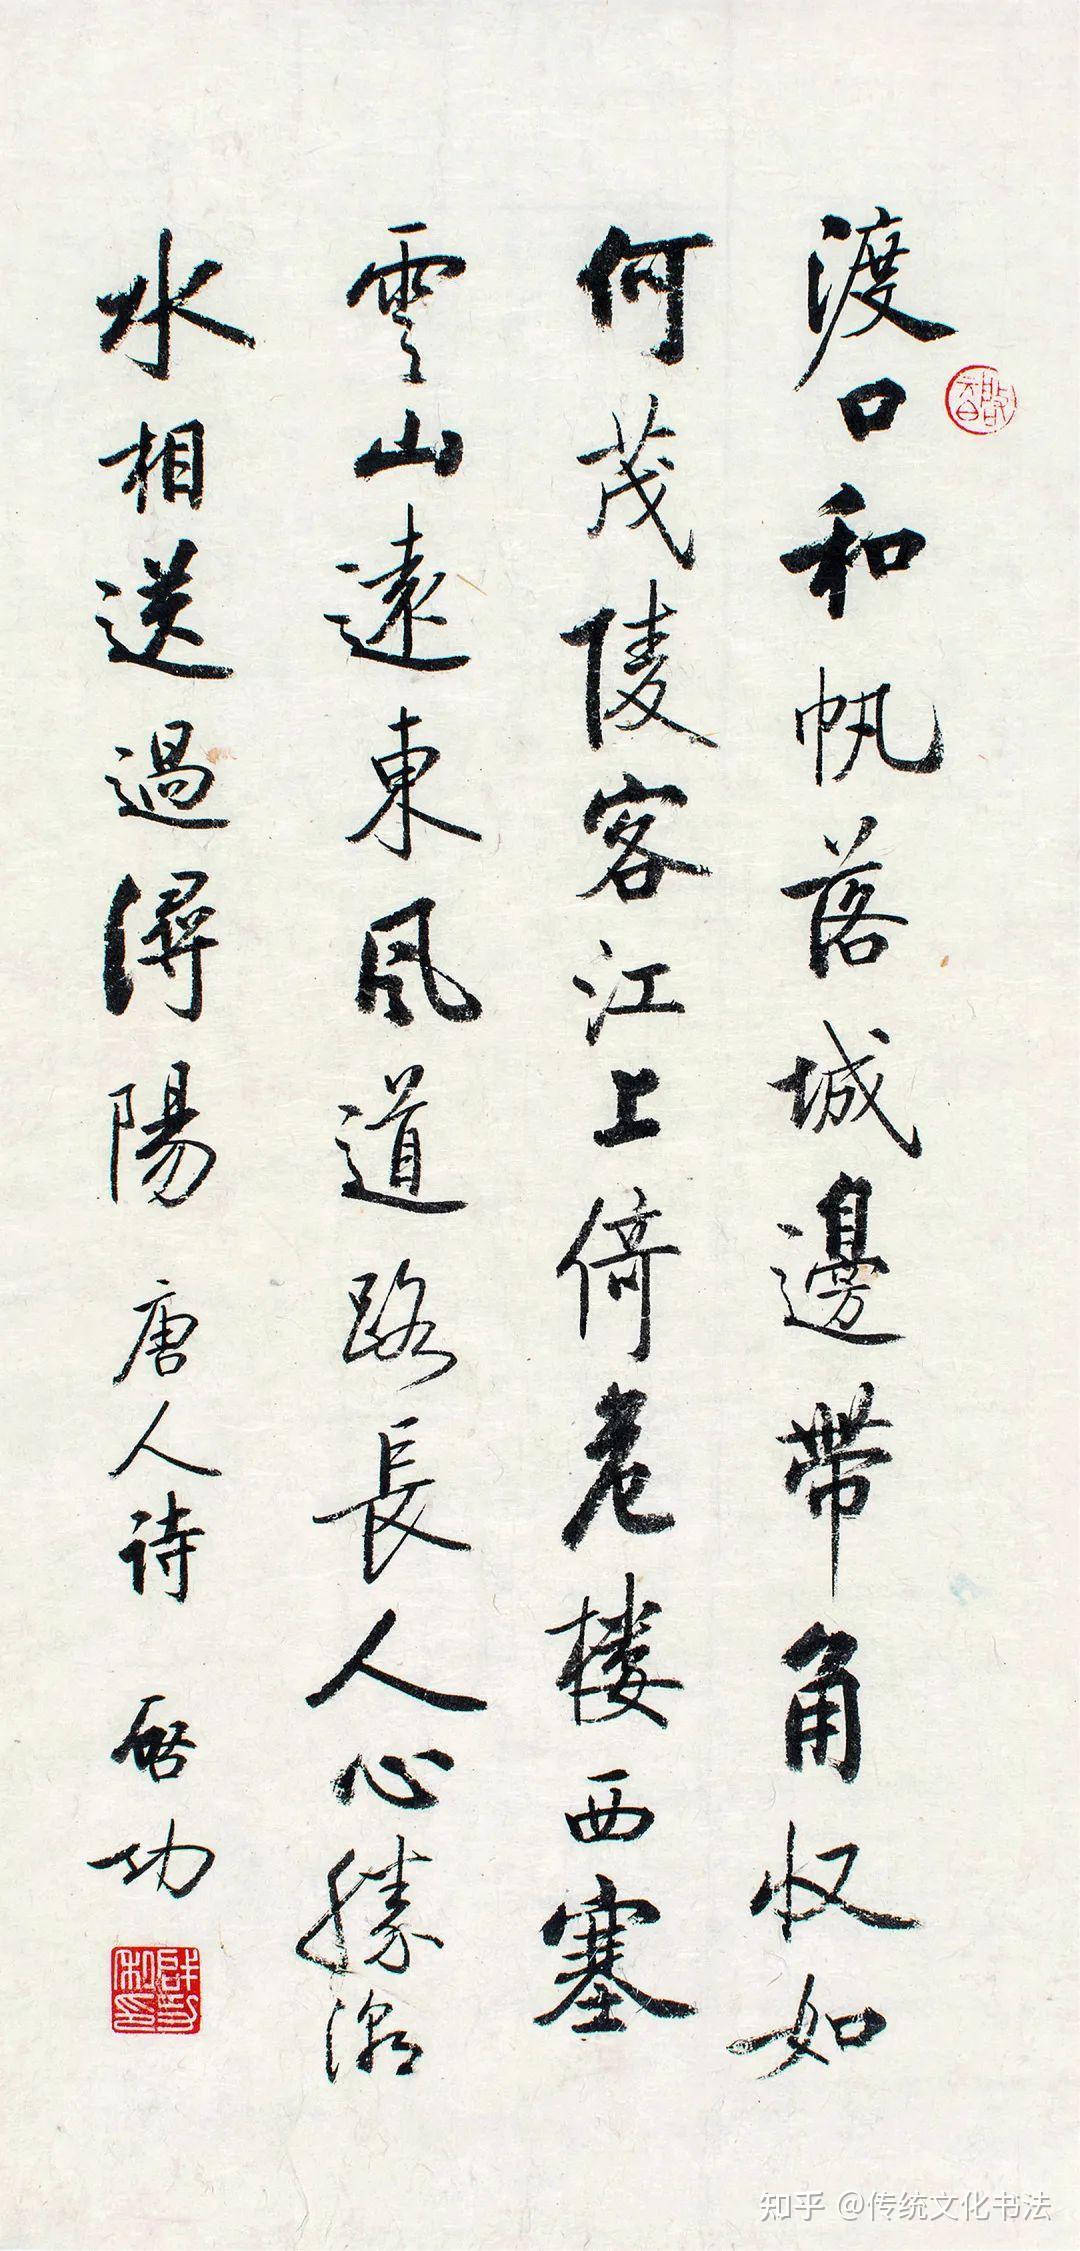 渡口和帆落城邊帶角収如
何茂陵客江上倚危楼西塞
雲山遠東風道路長人心勝潮
水相送過潯陽 唐人诗 启功
知乎 @传统文化书法